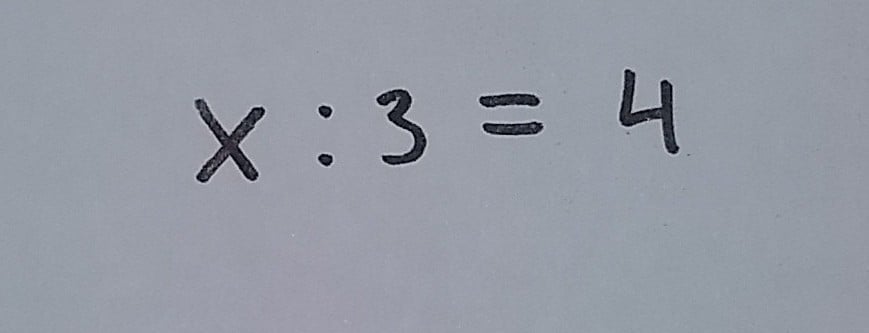 x : 3 = 4